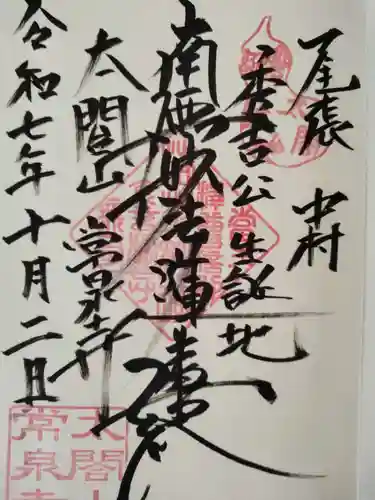 尾張 中村
秀吉公生誕地
南無妙法蓮華経
太閤山 常泉寺
令和七年十月二日
太閤
常泉寺